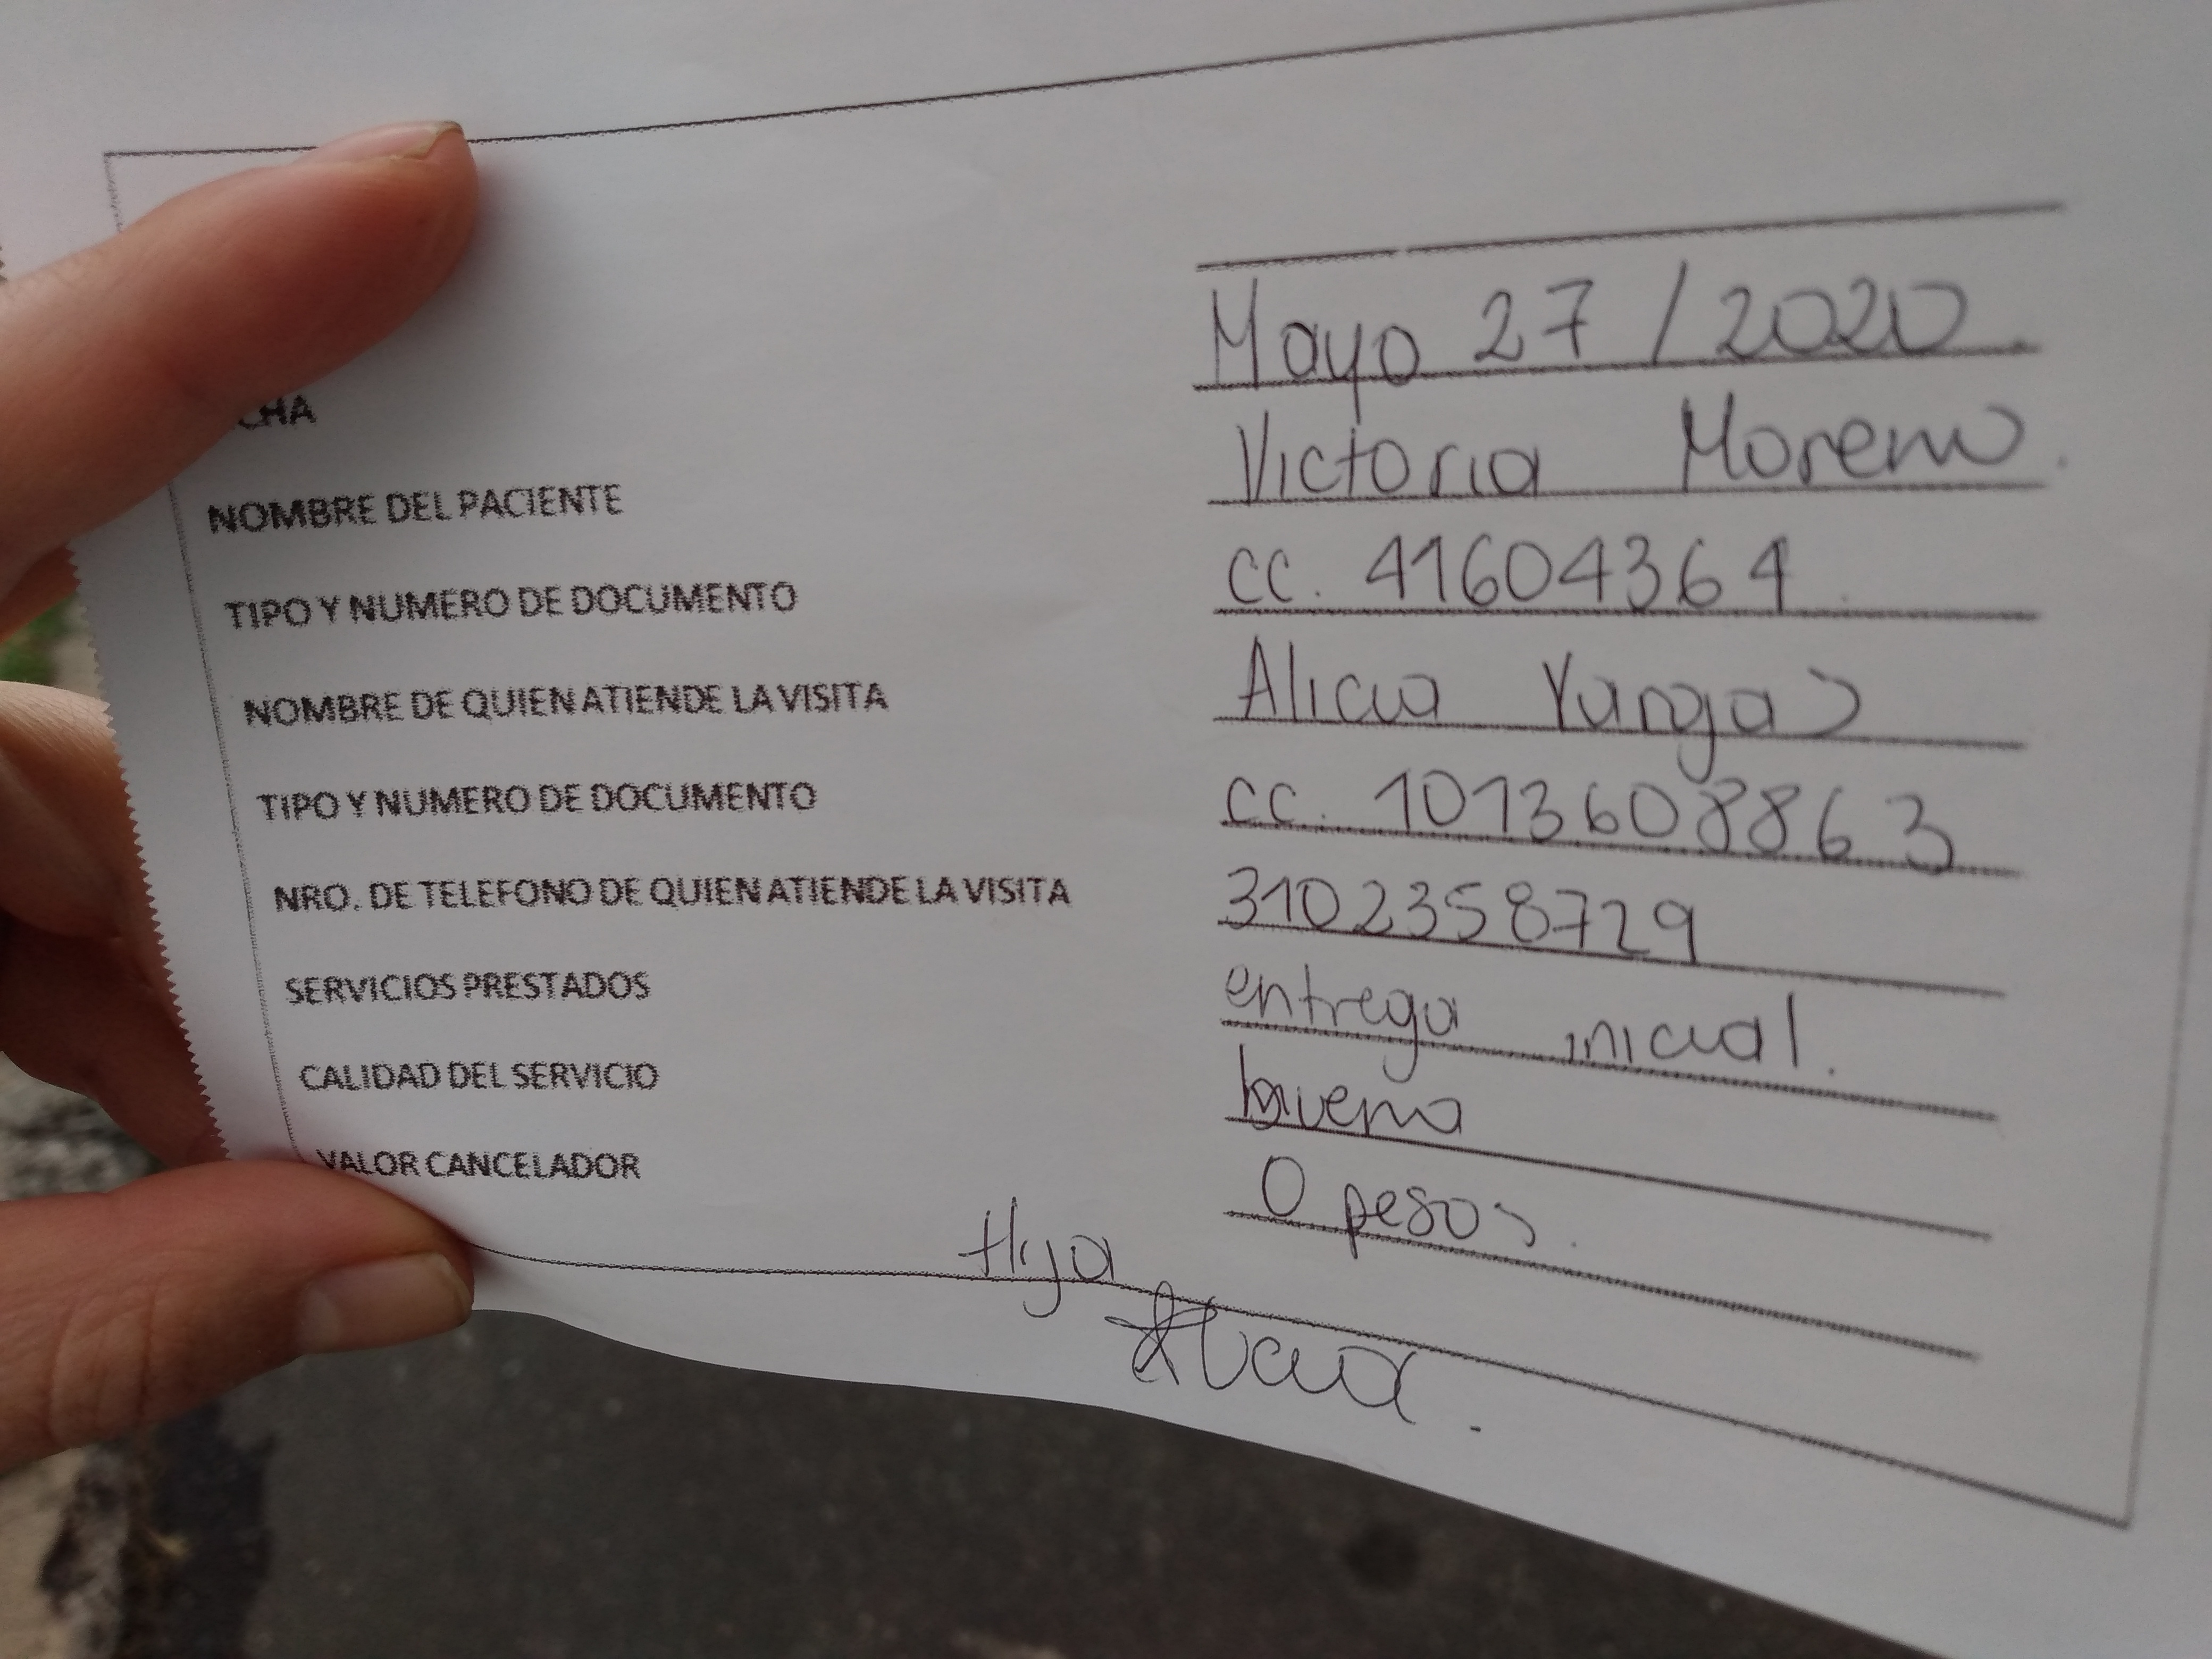 CHA Mayo 27 / 2020.
NOMBRE DEL PACIENTE Victoria Moreno.
TIPO Y NUMERO DE DOCUMENTO CC. 41604364
NOMBRE DE QUIEN ATIENDE LA VISITA Alicia Vargas
TIPO Y NUMERO DE DOCUMENTO CC. 1013608863
NRO. DE TELEFONO DE QUIEN ATIENDE LA VISITA 3102358729
SERVICIOS PRESTADOS entrega inicial.
CALIDAD DEL SERVICIO bueno
VALOR CANCELADOR 0 pesos.
Hija